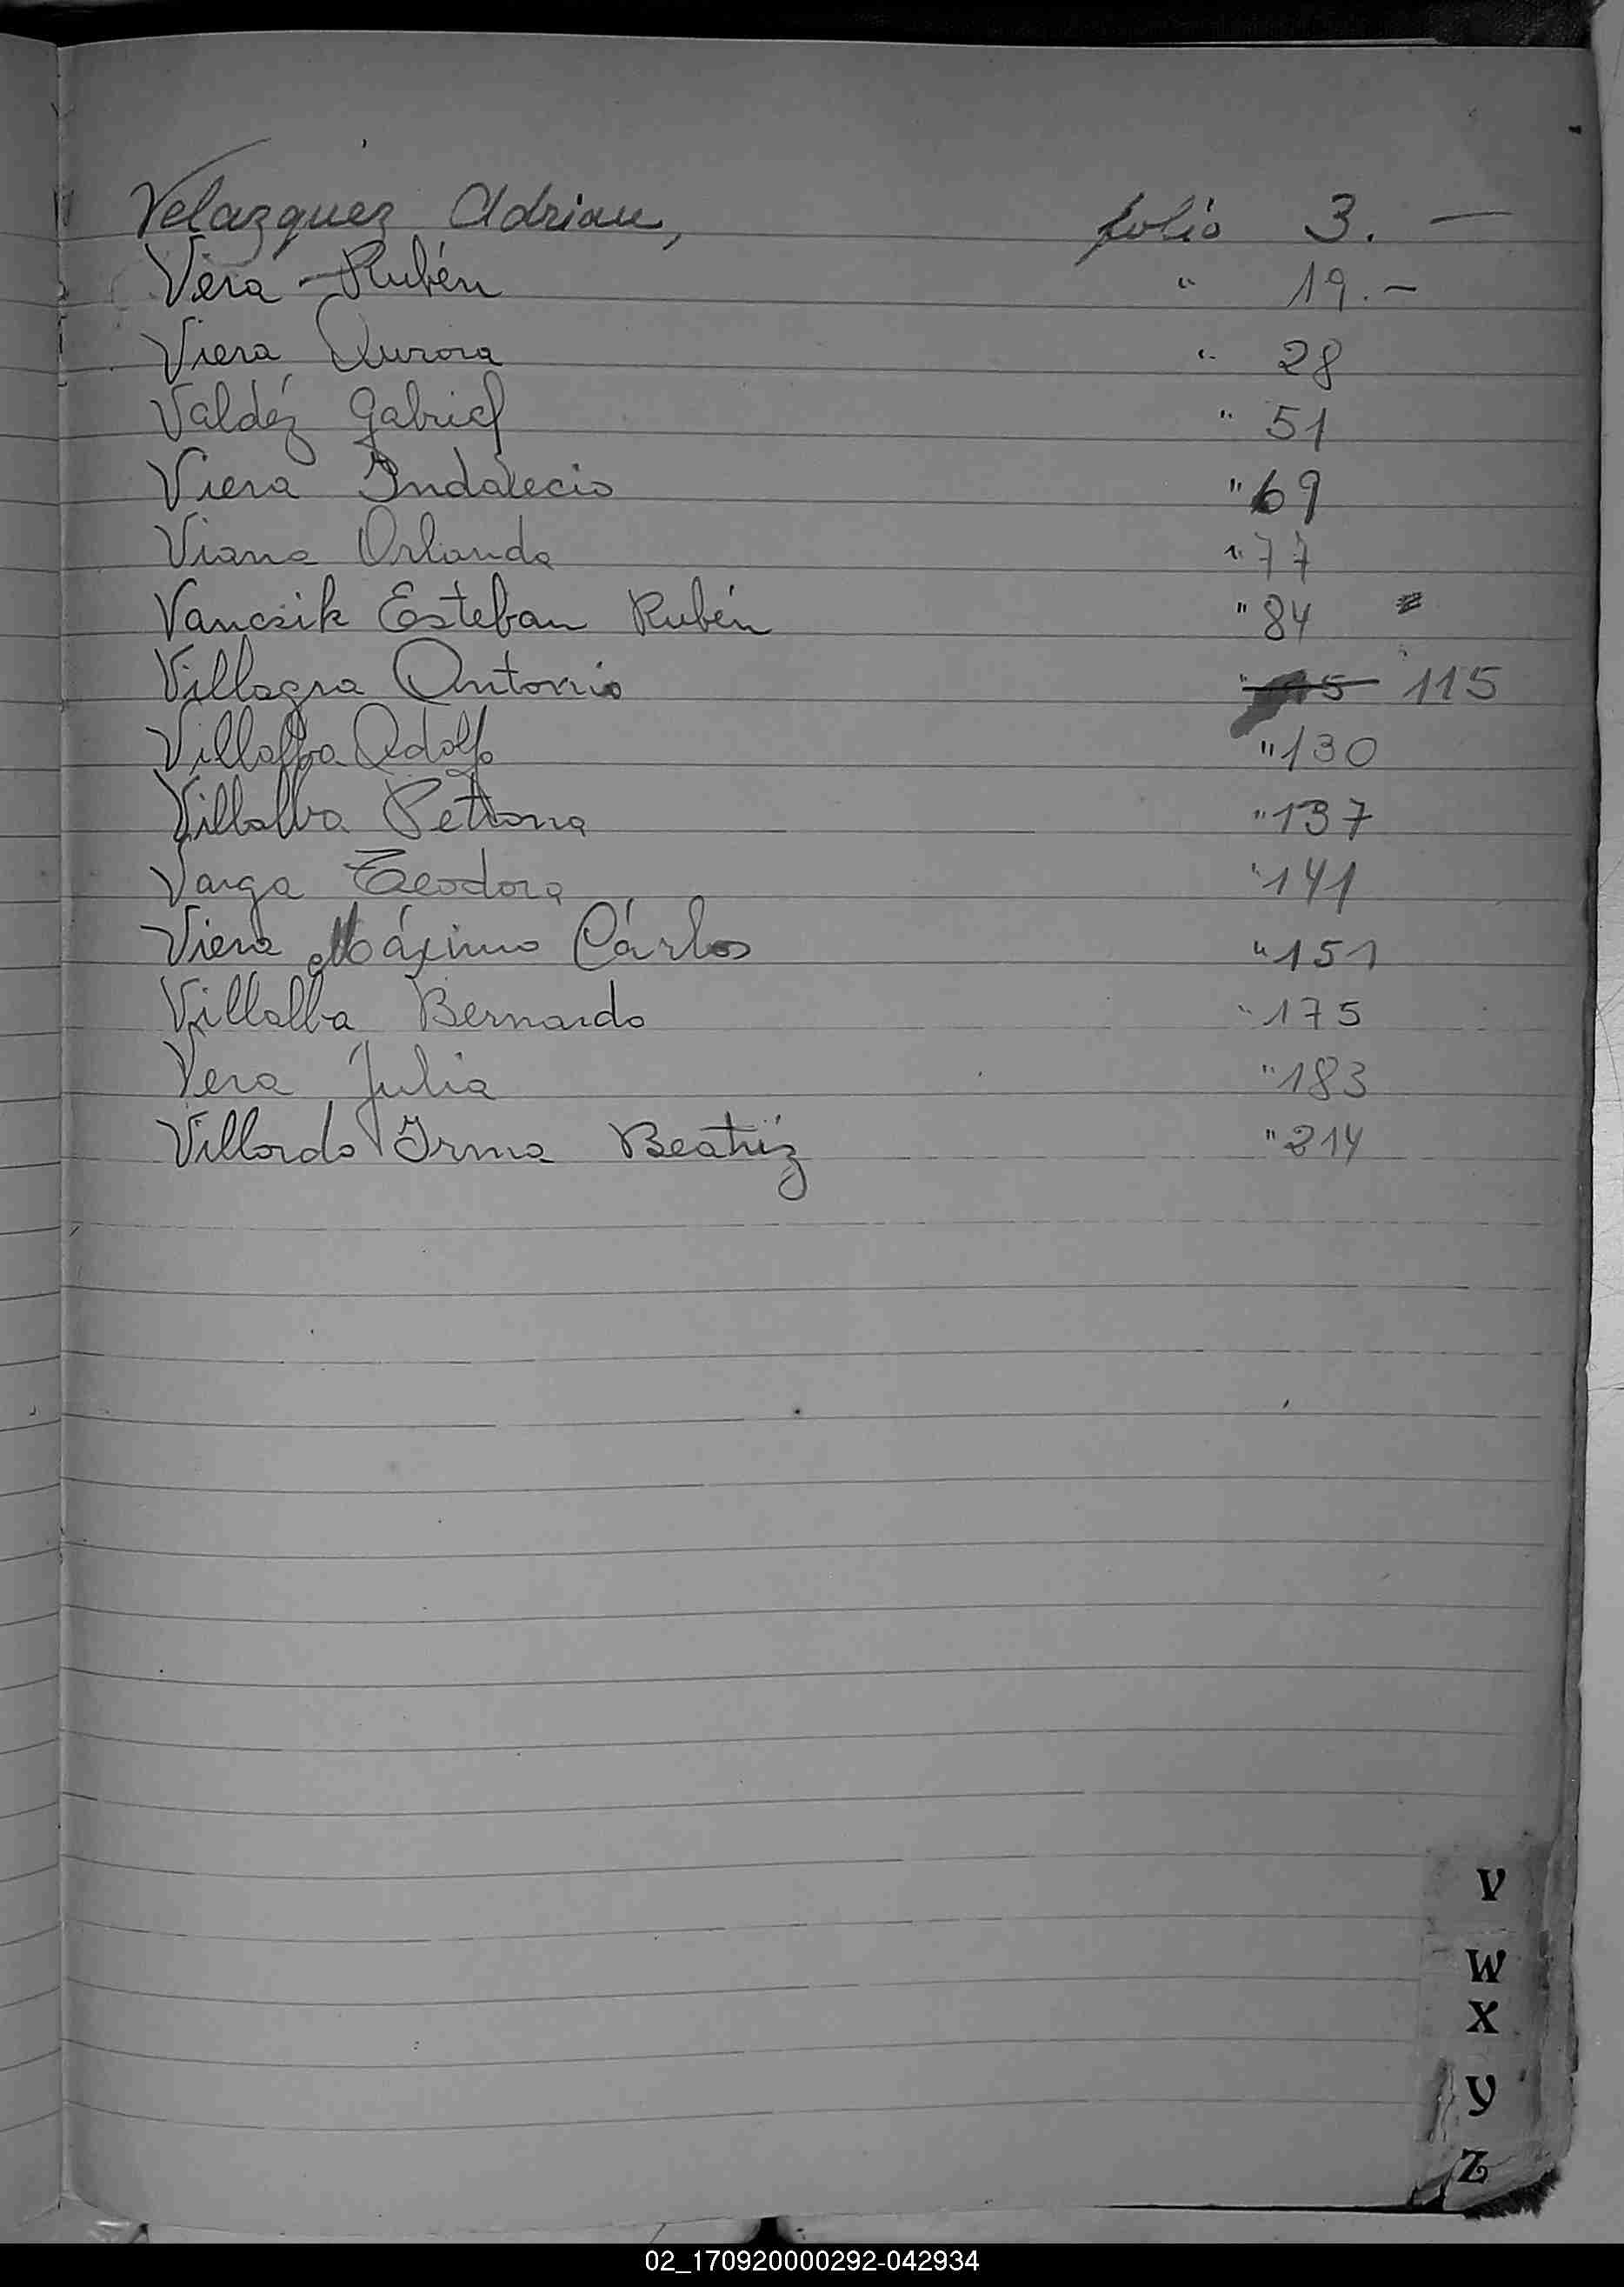 Velazquez Adrian, folio 3. —
Vera Rubén " 19.-
Viera Aurora " 28
Valdéz Gabriel " 51
Viera Indalecio " 69
Viana Orlando " 77
Vancsik Esteban Rubén " 84
Villagra Antonio " 115
Villalba Adolfo " 130
Villalba Petrona " 137
Varga Teodora " 141
Viera Máximo Cárlos " 151
Villalba Bernardo " 175
Vera Julia " 183
Villordo Irma Beatriz " 214
V
W
X
Y
Z
02_170920000292-042934